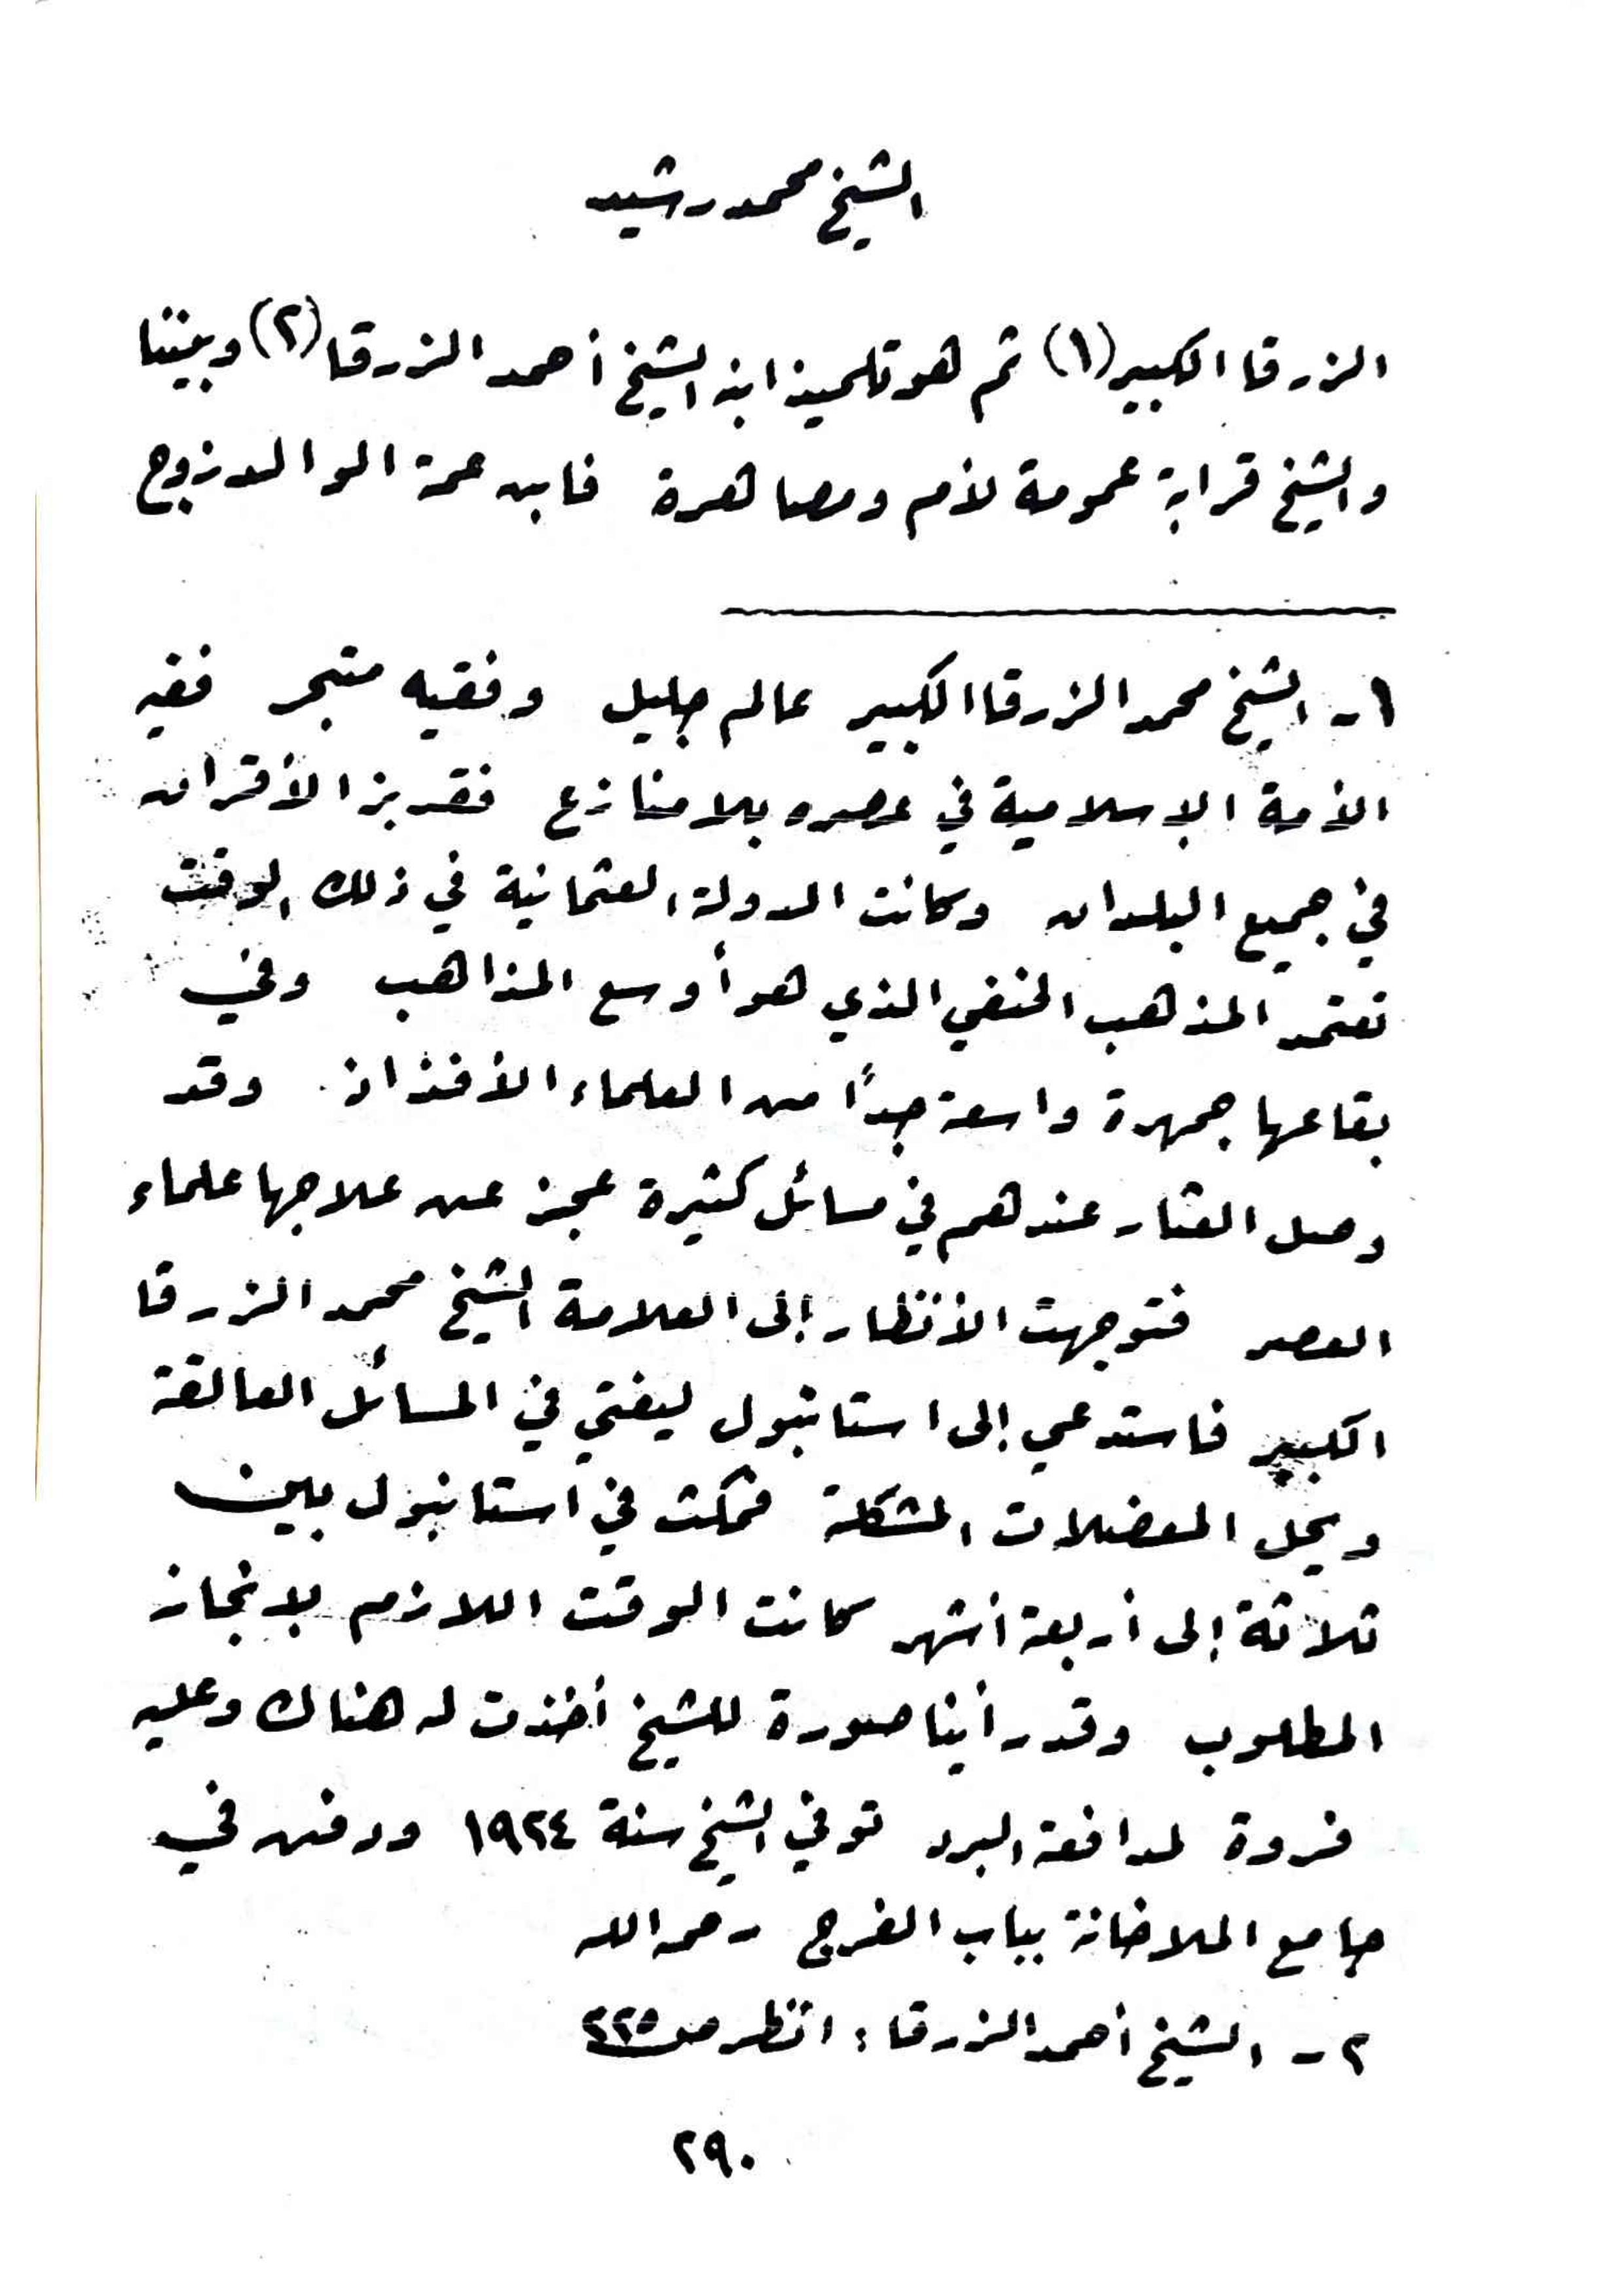 الشيخ محمد رشيد
الزرقا الكبير (١) ثم هو تلميذ ابنه الشيخ أحمد الزرقا (٢) وبيننا
والشيخ قرابة عمومة لأم ومصاهرة فابن عمة الوالد زوج
١- الشيخ محمد الزرقا الكبير عالم جليل وفقيه متبحر فقيه
الأمة الإسلامية في عصره بلا منازع فقد بز الأقران
في جميع البلدان وكانت الدولة العثمانية في ذلك الوقت
تعتمد المذهب الحنفي الذي هو أوسع المذاهب وفي
بقاعها جمهرة واسعة جداً من العلماء الأفذاذ. وقد
وصل العثار عندهم في مسائل كثيرة عجز عن علاجها علماء
العصر فتوجهت الأنظار إلى العلامة الشيخ محمد الزرقا
الكبير فاستدعي إلى استانبول ليفتي في المسائل العالقة
ويحل المعضلات المشكلة فمكث في استانبول بين
ثلاثة إلى أربعة أشهر كانت الوقت اللازم لإنجاز
المطلوب وقد رأينا صورة للشيخ أخذت له هناك وعليه
فروة لمدافعة البرد توفي الشيخ سنة ١٩٢٤ ودفن في
جامع الملاخانة بباب الفرج رحمه الله
٢- الشيخ أحمد الزرقا: انظر ص ٢٢٥
٢٩٠